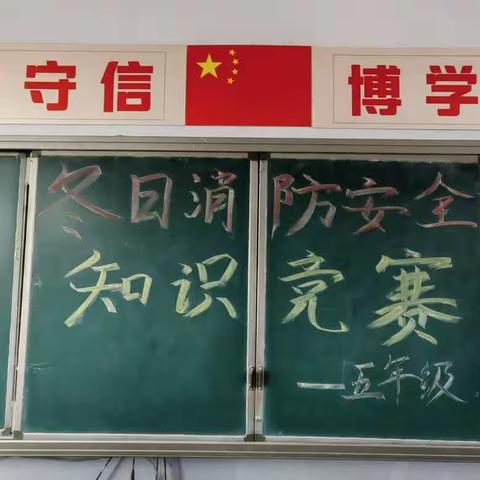 守信 博学
冬日消防安全
知识竞赛
—五年级